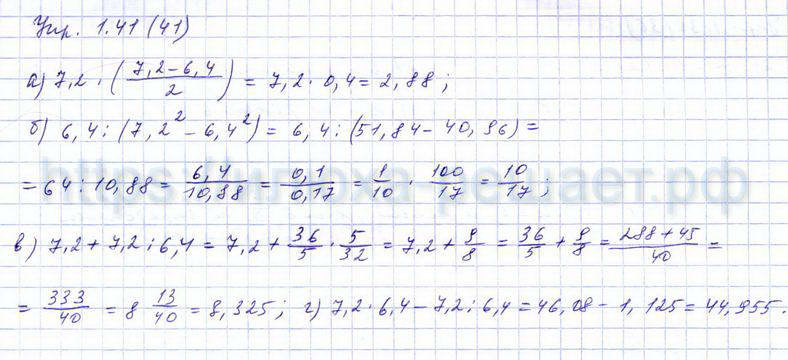 Упр. 1.41 (41)
а) 7,2 · ((7,2 - 6,4)/2) = 7,2 · 0,4 = 2,88 ;
б) 6,4 : (7,2² - 6,4²) = 6,4 : (51,84 - 40,96) =
= 64 : 10,88 = 6,4/10,88 = 0,1/0,17 = 1/10 · 100/17 = 10/17 ;
в) 7,2 + 7,2 : 6,4 = 7,2 + 36/5 · 5/32 = 7,2 + 9/8 = 36/5 + 9/8 = (288 + 45)/40 =
= 333/40 = 8 13/40 = 8,325 ; г) 7,2 · 6,4 - 7,2 : 6,4 = 46,08 - 1,125 = 44,955.